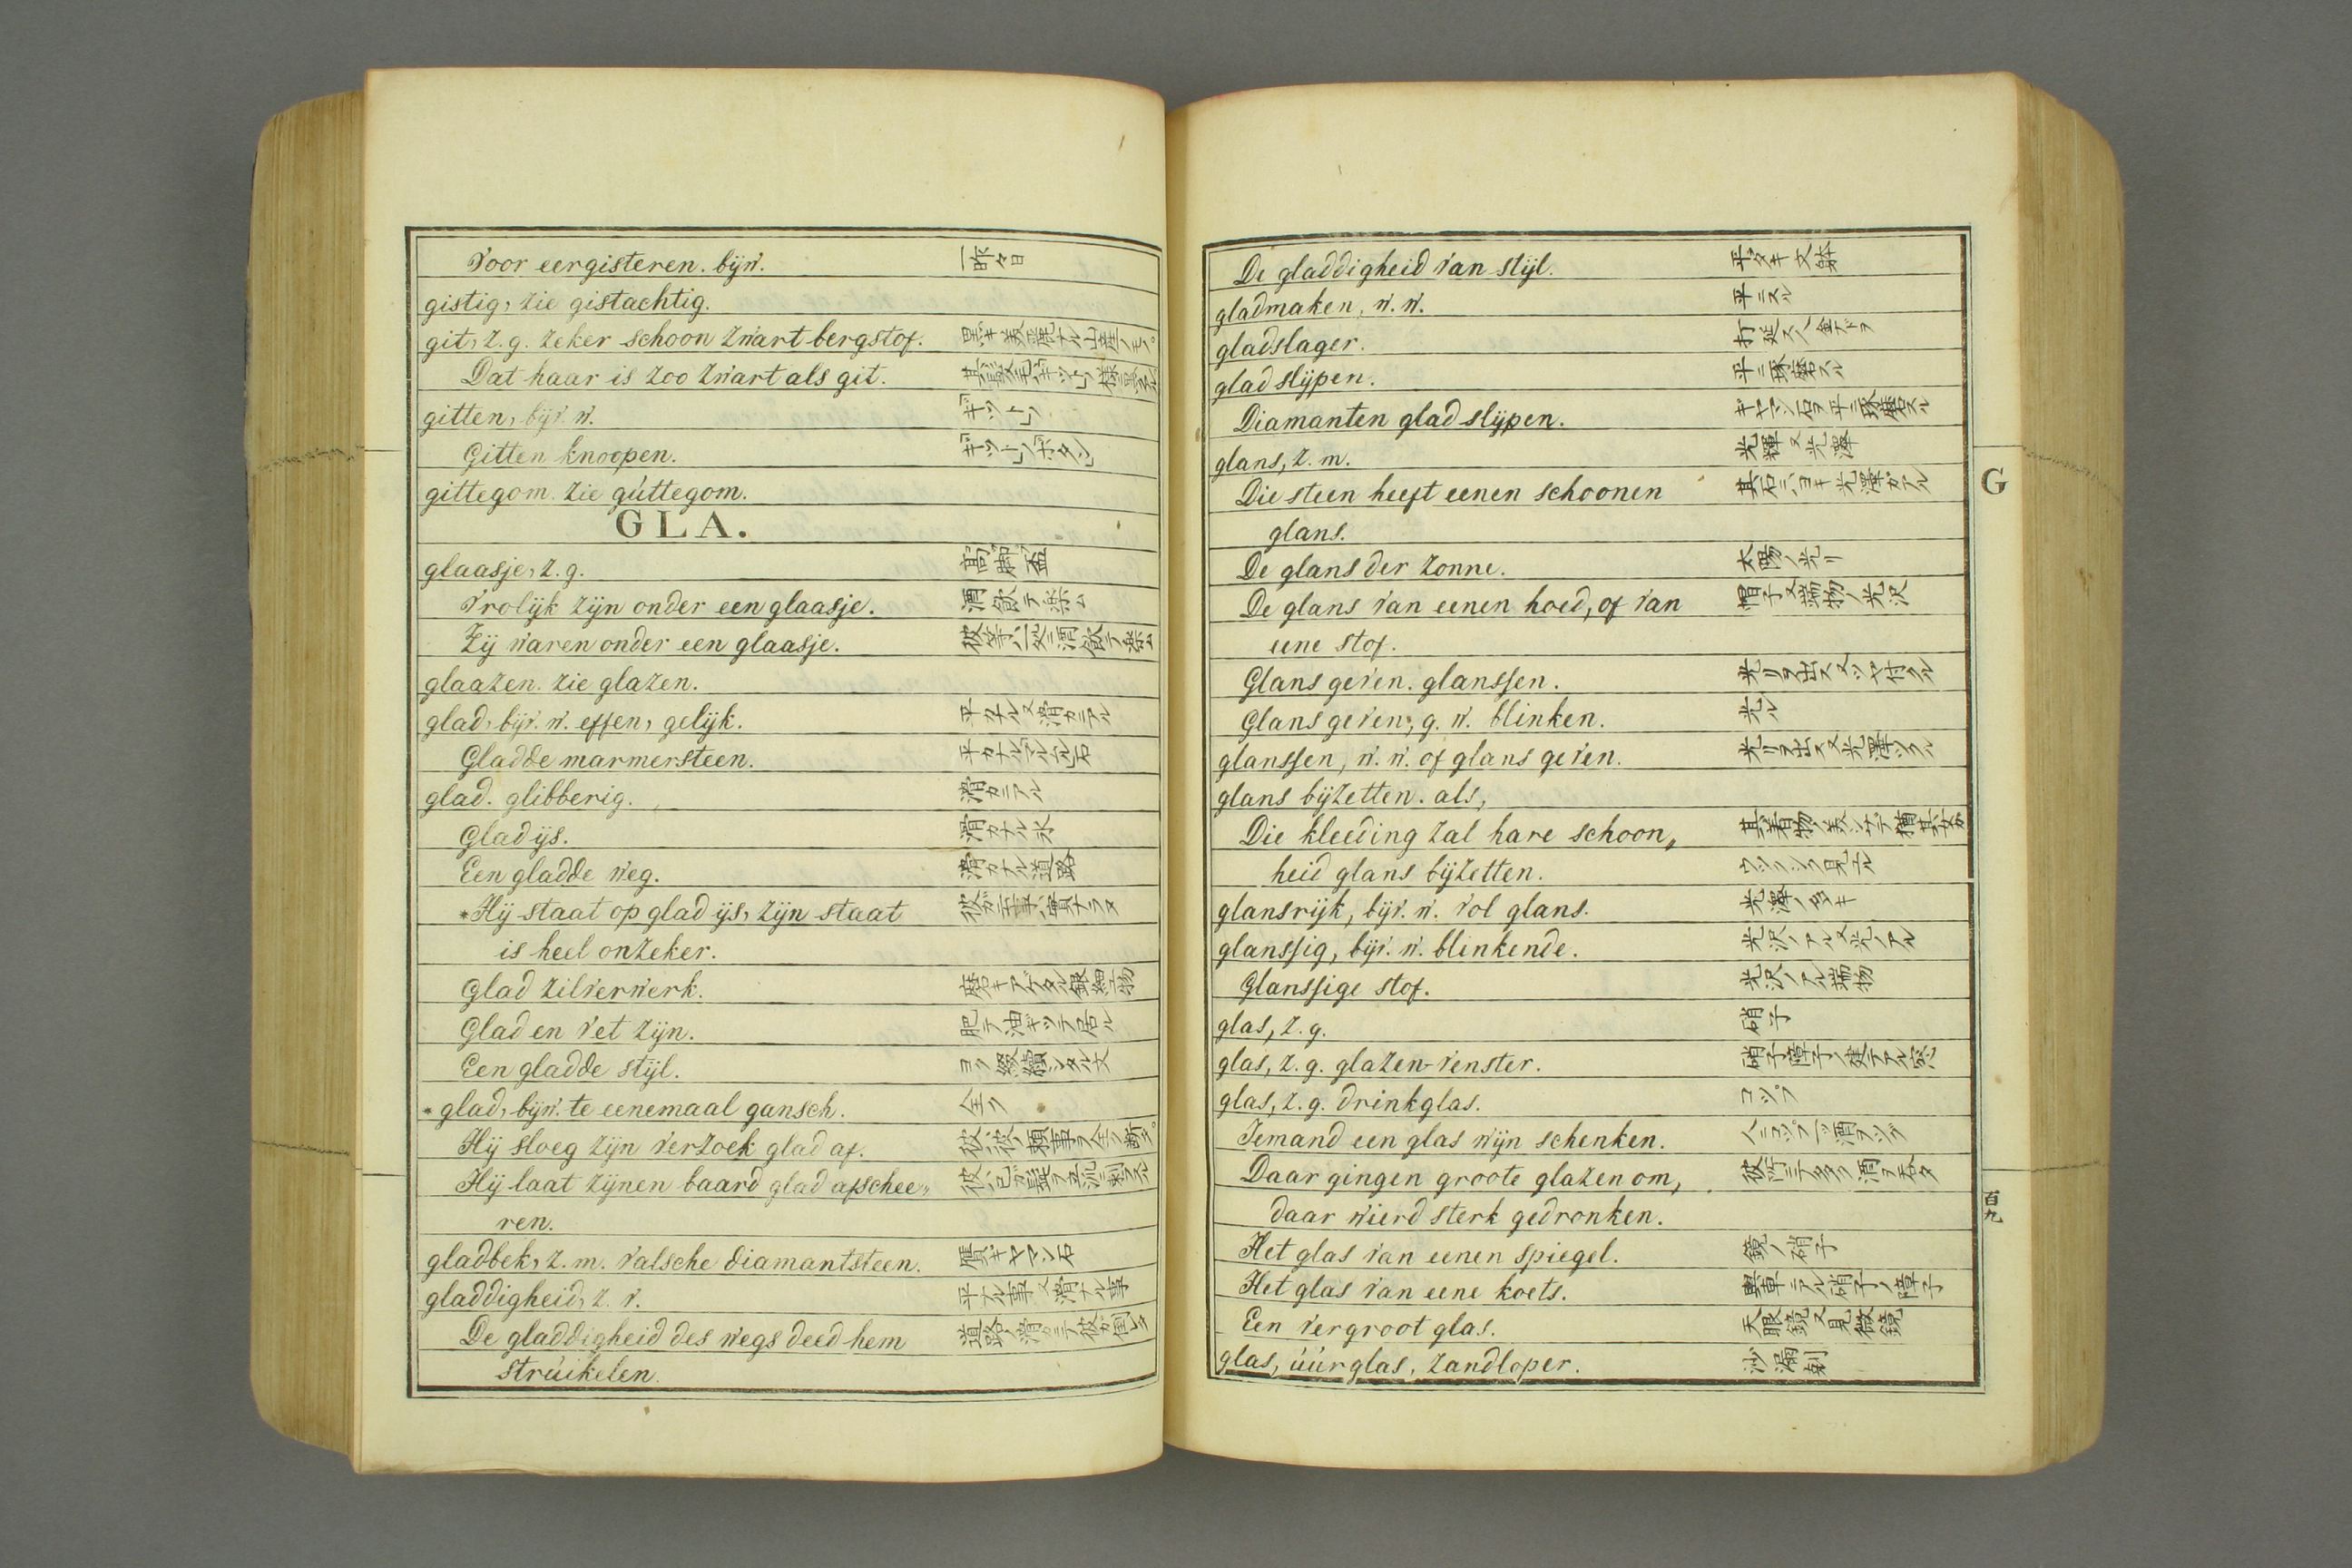 Voor eergisteren. bijw. 一昨々日
gistig, zie gistachtig.
git, z.g. zeker schoon zwart bergstof. 黒キ美麗ナル山産ノモノ
Dat haar is zoo zwart als git.
gitten, bijv. w. ギットノ
Gitten knoopen. ギットノボタン
gittegom. zie guttegom.
GLA.
glaasje, z.g. 高脚盃
Vrolijk zijn onder een glaasje. 酒飲テ楽ム
Zij waren onder een glaasje. 彼等ハ一処ニ酒飲テ楽ム
glaazen. zie glazen.
glad, bijv. w. effen, gelijk. 平カナル又滑カニアル
Gladde marmersteen.
glad. glibberig. 滑カニアル
Glad ijs. 滑カナル氷
Een gladde weg. 滑カナル道路
*Hij staat op glad ijs, zijn staat
is heel onzeker.
Glad zilverwerk. 磨キアゲタル銀細工物
Glad en vet zijn. 肥テ油ギッテ居ル
Een gladde stijl. ヨク綴續シタル文
* glad, bijw. te eenemaal gansch. 全ク
Hij sloeg zijn verzoek glad af.
Hij laat zijnen baard glad afschee„
ren.
gladbek, z.m. valsche diamantsteen. 贋ギヤマン石
gladdigheid, z. v. 平ナル事又滑ナル事
De gladdigheid des wegs deed hem
struikelen.
De gladdigheid van stijl.
gladmaken, w.w. 平ニスル
gladslager.
glad slijpen. 平ニ琢磨スル
Diamanten glad slijpen. ギヤマン石ヲ平ニ琢磨スル
glans, z.m. 光輝又光澤
Die steen heeft eenen schoonen 其石ニハヨキ光澤ガアル
glans.
De glans der zonne. 太陽ノ光リ
De glans van eenen hoed, of van 帽子又端物ノ光沢
eene stof.
Glans geven. glanssen. 光リヲ出ス又ツヤ付クル
Glans geven, g.w. blinken. 光ル
glanssen, w.w. of glans geven.
glans bijzetten. als,
Die kleeding zal hare schoon„
heid glans bijzetten.
glansrijk, bijv. w. vol glans. 光澤ノ多キ
glanssig, bijv. w. blinkende. 光沢ノアル又光ノアル
Glanssige stof. 光沢ノアル端物
glas, z.g. 硝子
glas, z.g. glazen-venster.
glas, z.g. drinkglas. コップ
Iemand een glas wijn schenken.
Daar gingen groote glazen om,
daar wierd sterk gedronken.
Het glas van eenen spiegel. 鏡ノ硝子
Het glas van eene koets.
Een vergroot glas. 天眼鏡又見微鏡
glas, uurglas, zandloper. 沙漏刻
G
百九